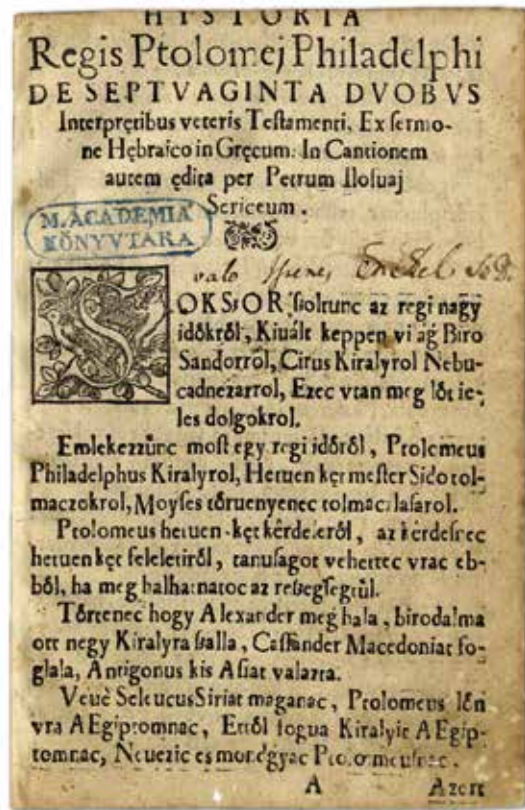 HISTORIA
Regis Ptolomej Philadelphi
DE SEPTVAGINTA DVOBVS
Interprętibus veteris Teſtamenti, Ex ſermo-
ne Hębraico in Gręcum: In Cantionem
autem ędita per Petrum Iloſuaj
Sericeum.
M. ACADEMIA
KÖNYVTARA
valo Enekel
SOKSzOR ſzoltunc az regi nagy
időkről, Kiuált keppen vi ág Biro
Sandorról, Cirus Kiralyrol Nebu-
cadnezarrol, Ezec vtan meg lőt ie-
les dolgokrol.
Emlekezzűnc moſt egy regi időről, Ptolemeus
Philadelphus Kiralyrol, Hetuen kęt meſter Sido tol-
maczokrol, Moyſes tőruenyenec tolmaczlaſarol.
Ptolomeus hetuen kęt kérdeſeről, az kérdeſnec
hetuen kęt feleletiről, tanuſagot vehettec vrac eb-
ből, ha meg halhatnatoc az reſzegſegtűl.
Tőrtenec hogy Alexander meg hala, birodalma
ott negy Kiralyra ſzalla, Caſſander Macedoniat fo-
glala, Antigonus kis Aſiat valazta.
Veué Seleucus Siriat maganac, Ptolomeus lőn
vra AEgiptomnac, Ettől fogua Kiralyit AEgip-
tomnac, Neuezic es mondgyac Ptolomeuſnac.
A Azert